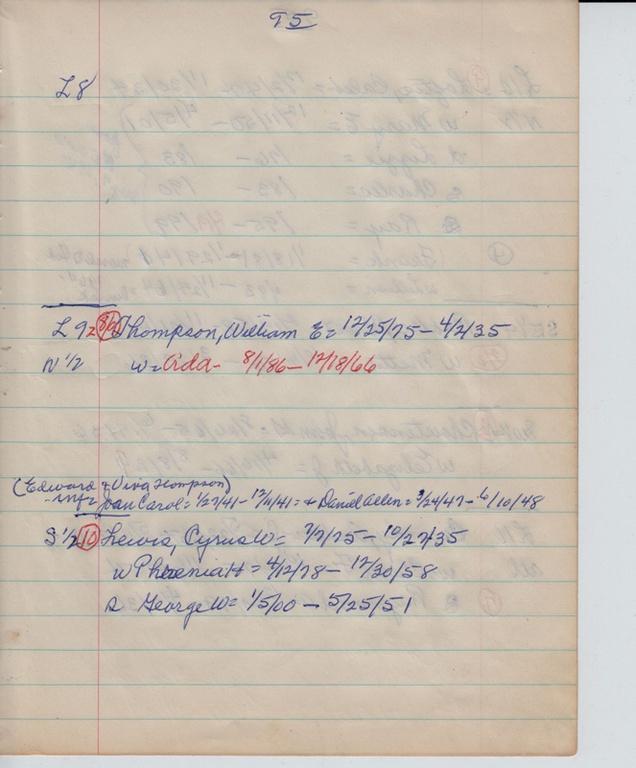 95
L8
L92 86 Thompson, William E = 12/25/75 - 4/2/35
N 1/2 w = Ada - 8/1/86 - 12/18/66
(Edward & Viva Thompson)
- inf = Joan Carol = 1/27/41 - 12/11/41 = & Daniel Allen = 3/24/47 - 6/10/48
S 1/2 10 Lewis, Cyrus W = 7/7/75 - 10/27/35
w Pheenia H = 4/12/78 - 12/30/58
s George W = 1/5/00 - 5/25/51